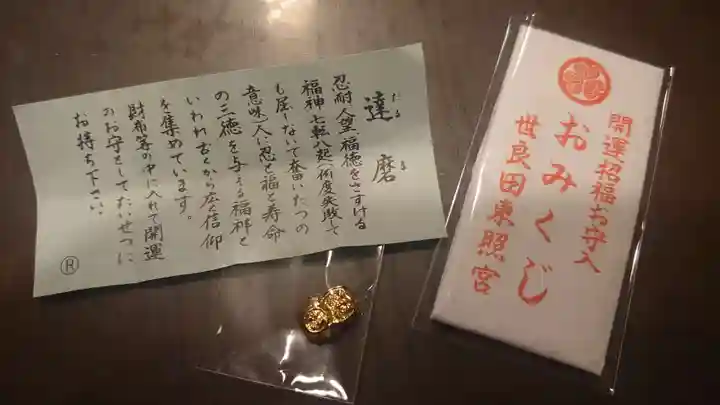 達磨
だるま
忍耐、人望、福徳をさずける
福神 七転八起(何度失敗して
も屈しないで奮いたつの
意味)人に忍と福と寿命
の三徳を与える福神と
いわれ古くから広く信仰
を集めています。
財布等の中に入れて開運
のお守としてたいせつに
お持ち下さい。
R
開運招福お守入
おみくじ
世良田東照宮